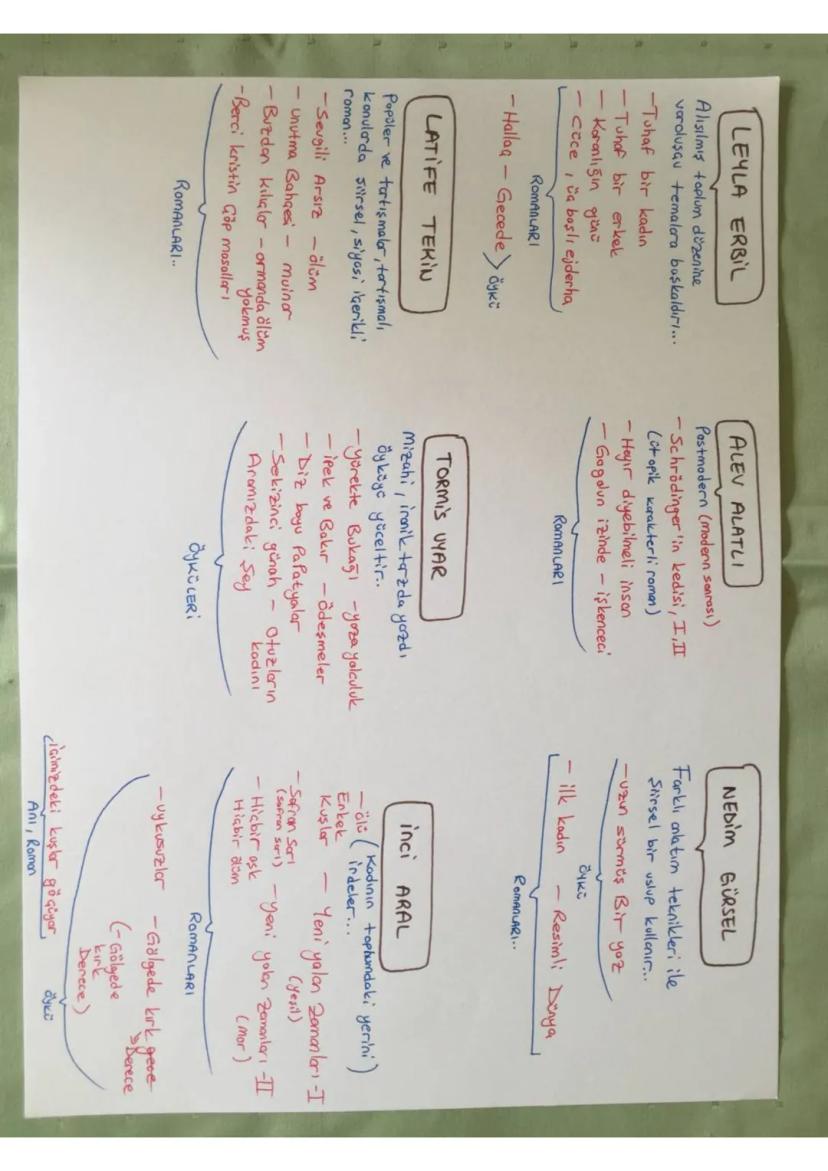 LEYLA ERBİL
Alışılmış toplum düzenine
varoluşçu temalara başkaldırı...
- Tuhaf bir kadın
- Tuhaf bir erkek
- Karanlığın günü
- Cüce, üç başlı ejderha
ROMANLARI
- Hallaç - Gecede > öykü
ALEV ALATLI
Postmodern (modern sonrası)
- Schrödinger'in kedisi, I, II
(ütopik karakterli roman)
- Hayır diyebilmeli insan
- Gogolun izinde - işkenceci
ROMANLARI
NEDİM GÜRSEL
Farklı anlatım teknikleri ile
şiirsel bir uslup kullanır...
- uzun sürmüş Bir yaz
öykü
- ilk kadın - Resimli Dünya
ROMANLARI..
LATİFE TEKİN
Popüler ve tartışmalar, tartışmalı
konularda şiirsel, siyasi içerikli
roman...
- Sevgili Arsız - ölüm
- unutma Bahçesi - muinar
- Buzdan kılıçlar - ormanda ölüm
yokmuş
- Berci kristin Çöp masalları
ROMANLARI..
TORMİS UYAR
Mizahi, ironik tarzda yazdı
öyküyü yüceltir..
- yürekte Bukağı - yaza yolculuk
- ipek ve Bakır - Ödeşmeler
- Diz boyu Papatyalar
- Sekizinci günah - Otuzların
kadını
Aramızdaki Şey
ÖYKÜLERİ
İNCİ ARAL
(Kadının toplumdaki yerini)
irdeler...
- ölü
Erkek
Kuşlar - Yeni yalan Zamanları - I
(yeşil)
- Safran Sarı
(safran sarı) - Yeni yalan zamanları - II
(mor)
- Hiçbir aşk
Hiçbir ölüm
ROMANLARI
- uykusuzlar - Gölgede kırk gece
Derece
(- Gölgede
kırk
Derece)
öykü
içimizdeki kuşlar göçüyor
Anı, Roman